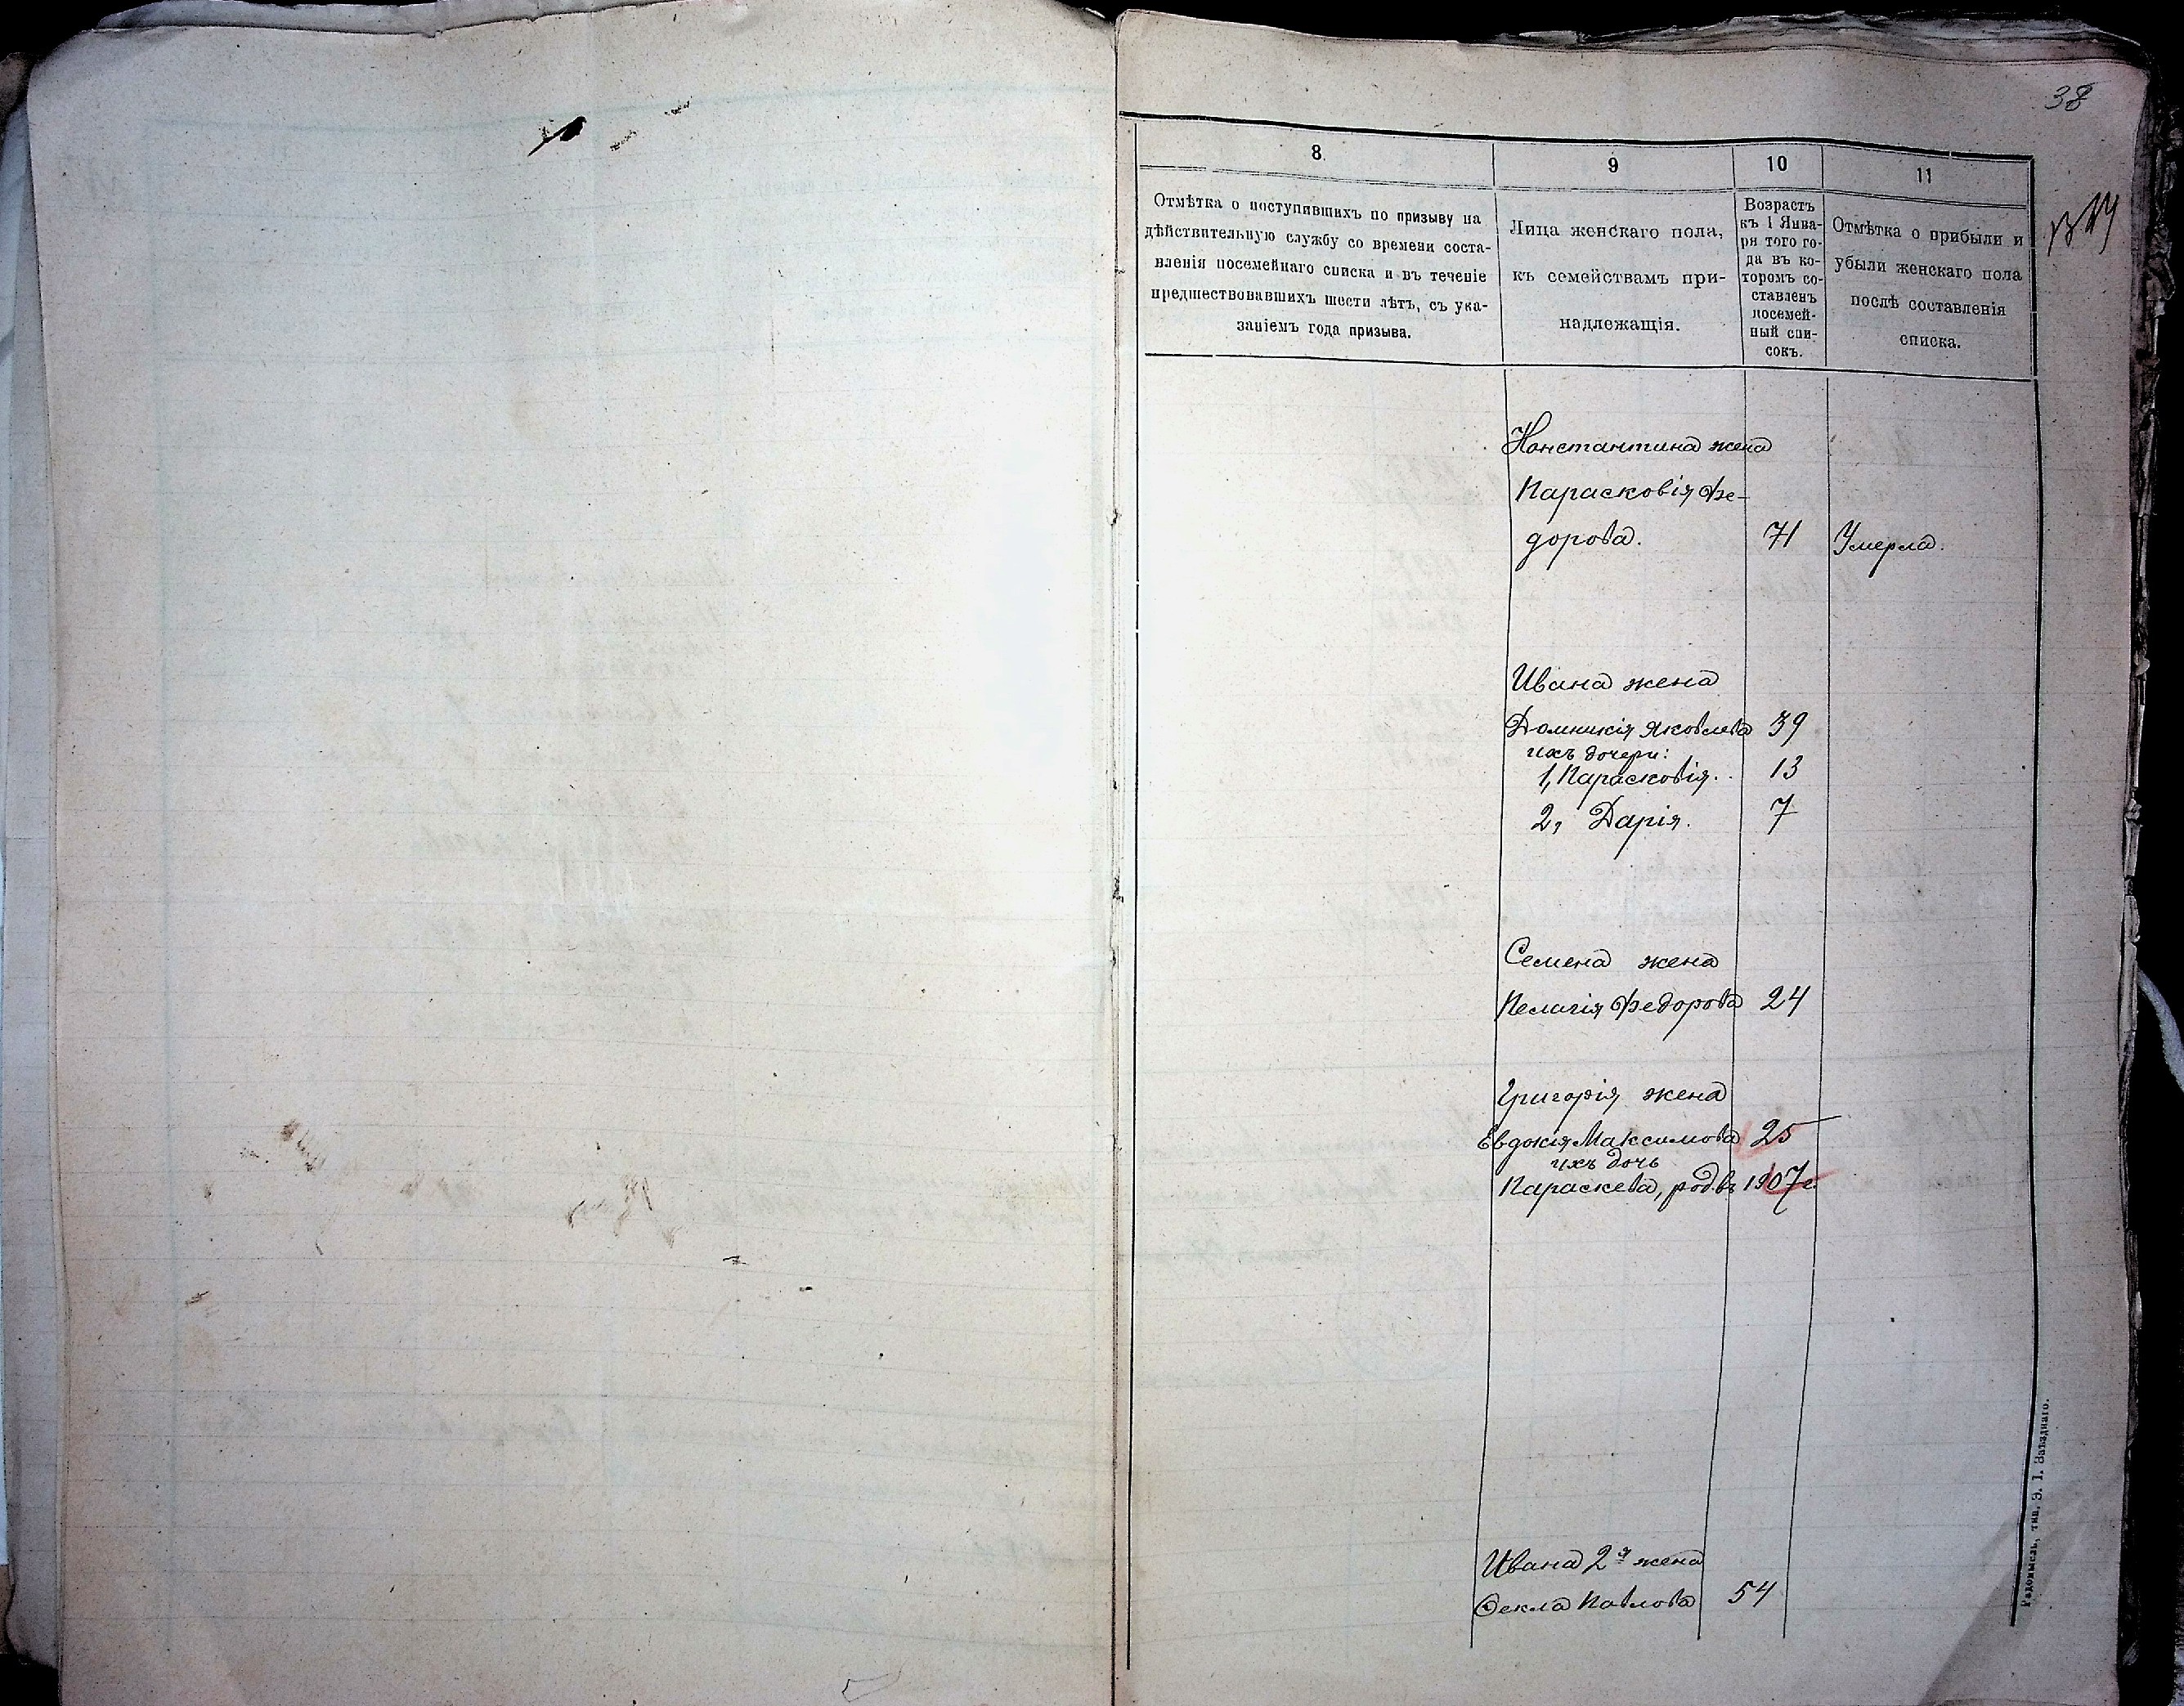 38
8.
9
10
11
Отмѣтка о поступившихъ по призыву на
дѣйствительную службу со времени соста-
вленія посемейнаго списка и въ теченіе
предшествовавшихъ шести лѣтъ, съ ука-
заніемъ года призыва.
Лица женскаго пола,
къ семействамъ при-
надлежащія.
Возрастъ
къ 1 Янва-
ря того го-
да въ ко-
торомъ со-
ставленъ
посемей-
ный спи-
сокъ.
Отмѣтка о прибыли и
убыли женскаго пола
послѣ составленія
списка.
Константина жена
Парасковія Фе-
дорова. 71 Умерла.
Ивана жена
Домникія Яковлева 39
ихъ дочери:
1, Парасковія. 13
2, Дарія. 7
Семена жена
Пелагія Федорова 24
Григорія жена
Евдокія Максимова 25
ихъ дочь
Параскева, род. въ 1907 г.
Ивана 2я жена
Ѳекла Павлова 54
Радомысль, тип. Э. І. Заѣзднаго.